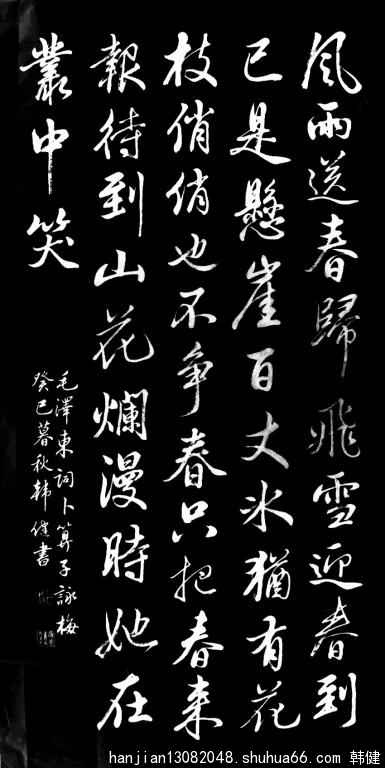 風雨送春歸飛雪迎春到
已是懸崖百丈冰猶有花
枝俏俏也不争春只把春来
報待到山花爛漫時她在
叢中笑
毛澤東詞卜算子詠梅
癸巳暮秋韩健書
hanjian13082048.shuhua66.com 韩健